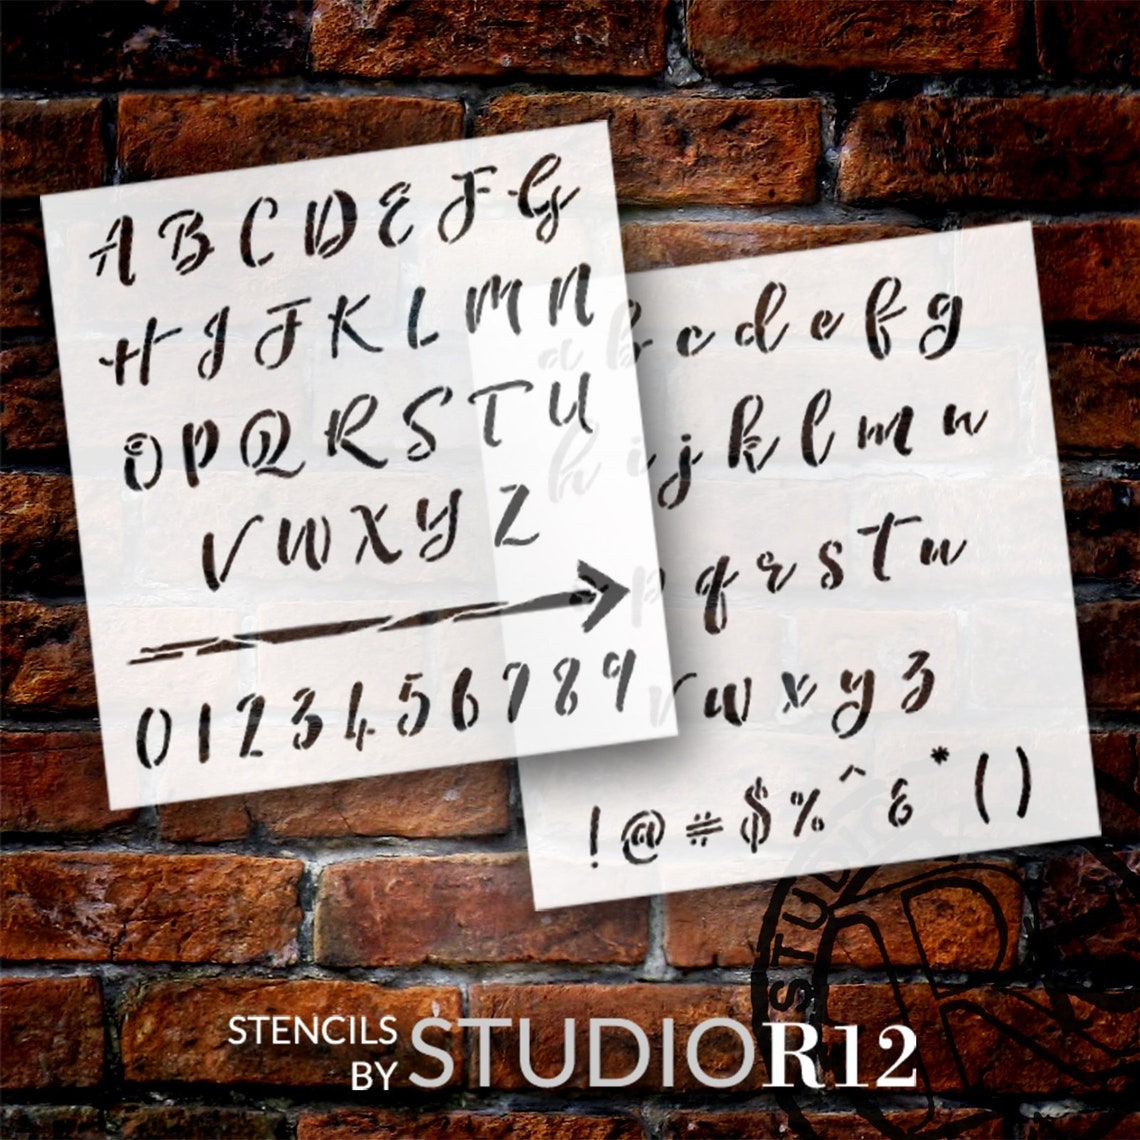 A B C D E F G
H I J K L M N
O P Q R S T U
V W X Y Z
0 1 2 3 4 5 6 7 8 9
a b c d e f g
h i j k l m n
p q r s t u
v w x y z
! @ # $ % ^ & * ( )
STENCILS
BY STUDIOR12
STUDIO
R12